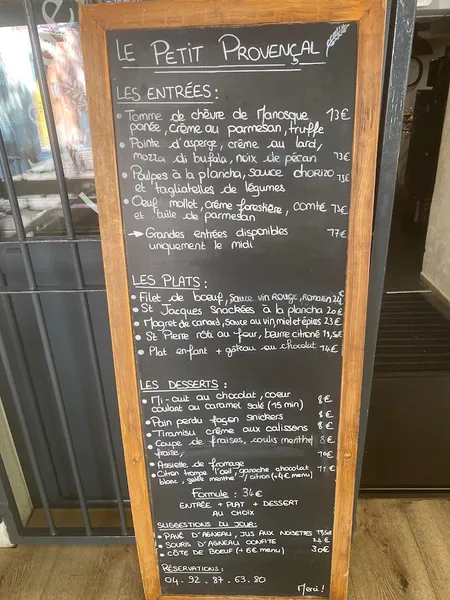 LE PETIT PROVENÇAL
LES ENTRÉES :
• Tomme de chèvre de Manosque 13€
panée, crème au parmesan, truffe
• Pointe d'asperge, crème au lard,
mozza di bufala, noix de pécan 13€
• Poulpes à la plancha, sauce chorizo 13€
et tagliatelles de légumes
• Oeuf mollet, crème forestière, comté 13€
et tuile de parmesan
→ Grandes entrées disponibles 17€
uniquement le midi
LES PLATS :
• Filet de bœuf, sauce vin rouge, romarin 24€
• St Jacques snackées à la plancha 20€
• Magret de canard, sauce au vin, miel et épices 23€
• St Pierre rôti au four, beurre citronné
• Plat enfant + gâteau au chocolat 14€
LES DESSERTS :
• Mi-cuit au chocolat, coeur 8€
coulant au caramel salé (15 min)
• Pain perdu façon snickers 8€
• Tiramisu crème aux calissons 8€
• Coupe de fraises, coulis menthe 8€
fraise,
• Assiette de fromage 10€
• Citron trompe l'oeil, ganache chocolat 11€
blanc, gelée menthe / citron (+4€ menu)
Formule : 34€
ENTRÉE + PLAT + DESSERT
AU CHOIX
SUGGESTIONS DU JOUR :
• PAVÉ D'AGNEAU, JUS AUX NOISETTES
• SOURIS D'AGNEAU CONFITE
• CÔTE DE BOEUF (+6€ menu) 30€
RÉSERVATIONS :
04.92.87.63.80
Merci !